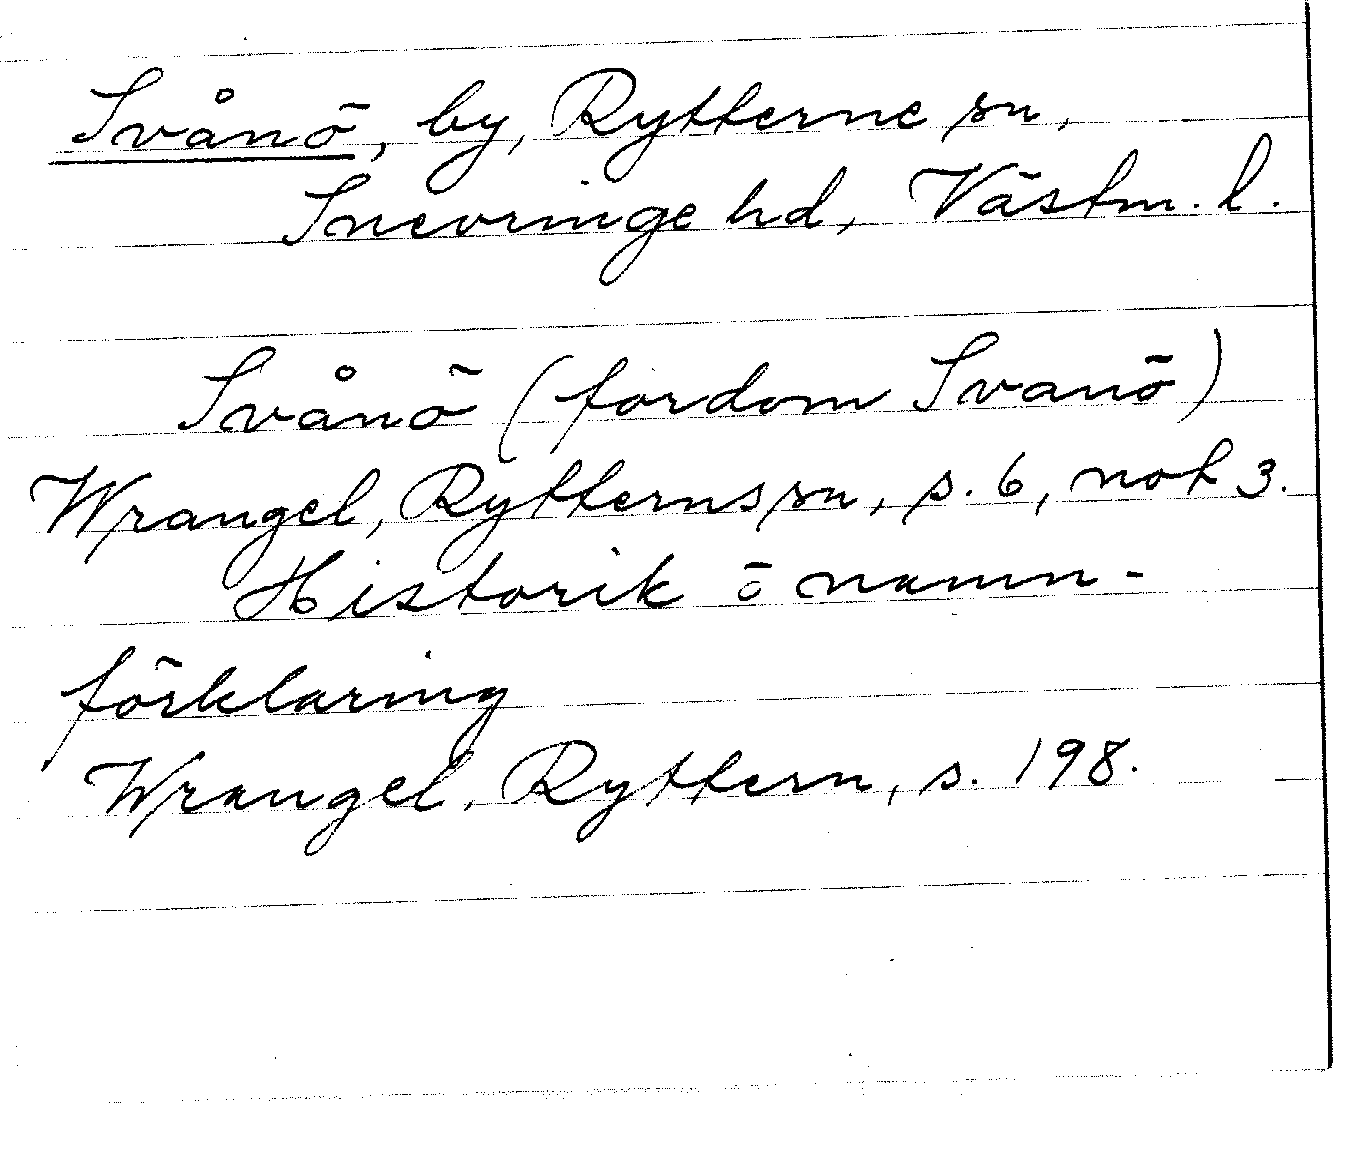 Svånö, by, Rytterne sn,
Snevringe hd, Västm. l.
Svånö (fordom Svanö)
Wrangel, Rytterns sn, s. 6, not 3.
Historik o namn-
förklaring
Wrangel, Ryttern, s. 198.